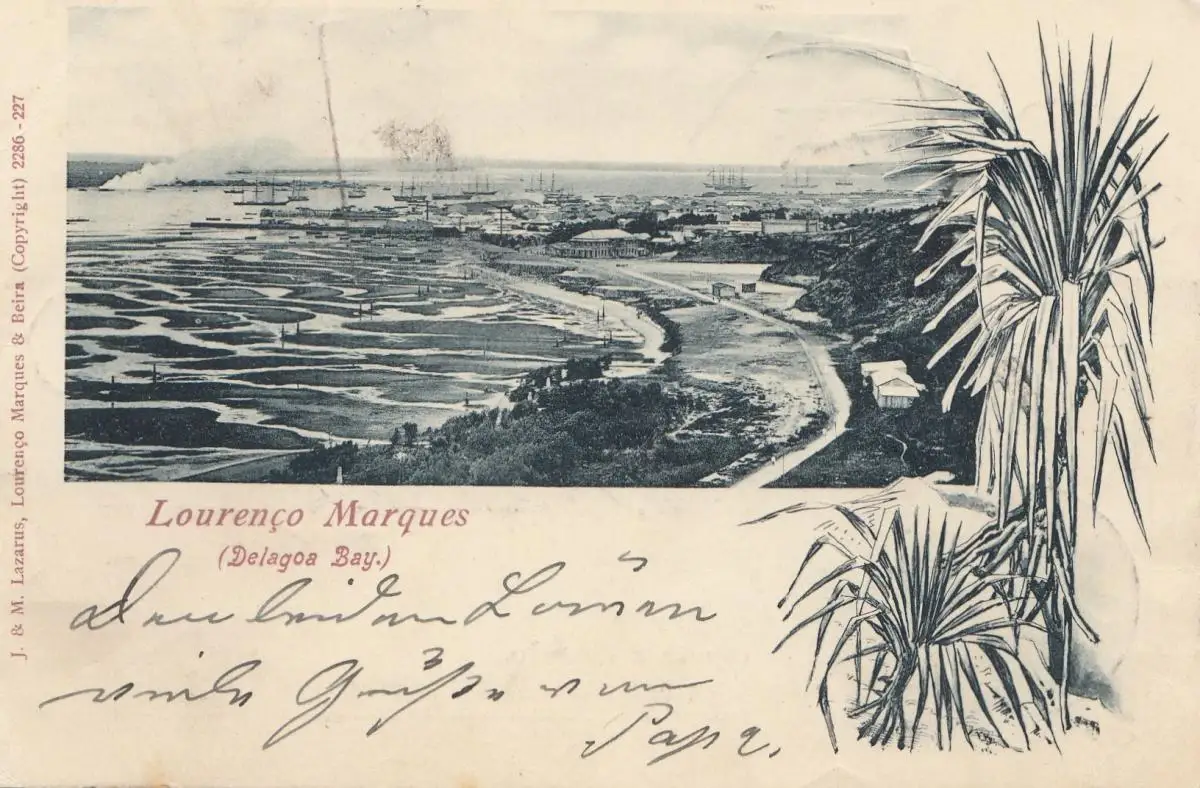 J. & M. Lazarus, Lourenço Marques & Beira (Copyright) 2286 - 227
Lourenço Marques
(Delagoa Bay.)
Den beiden Löwen
viele Grüße von
Papa.